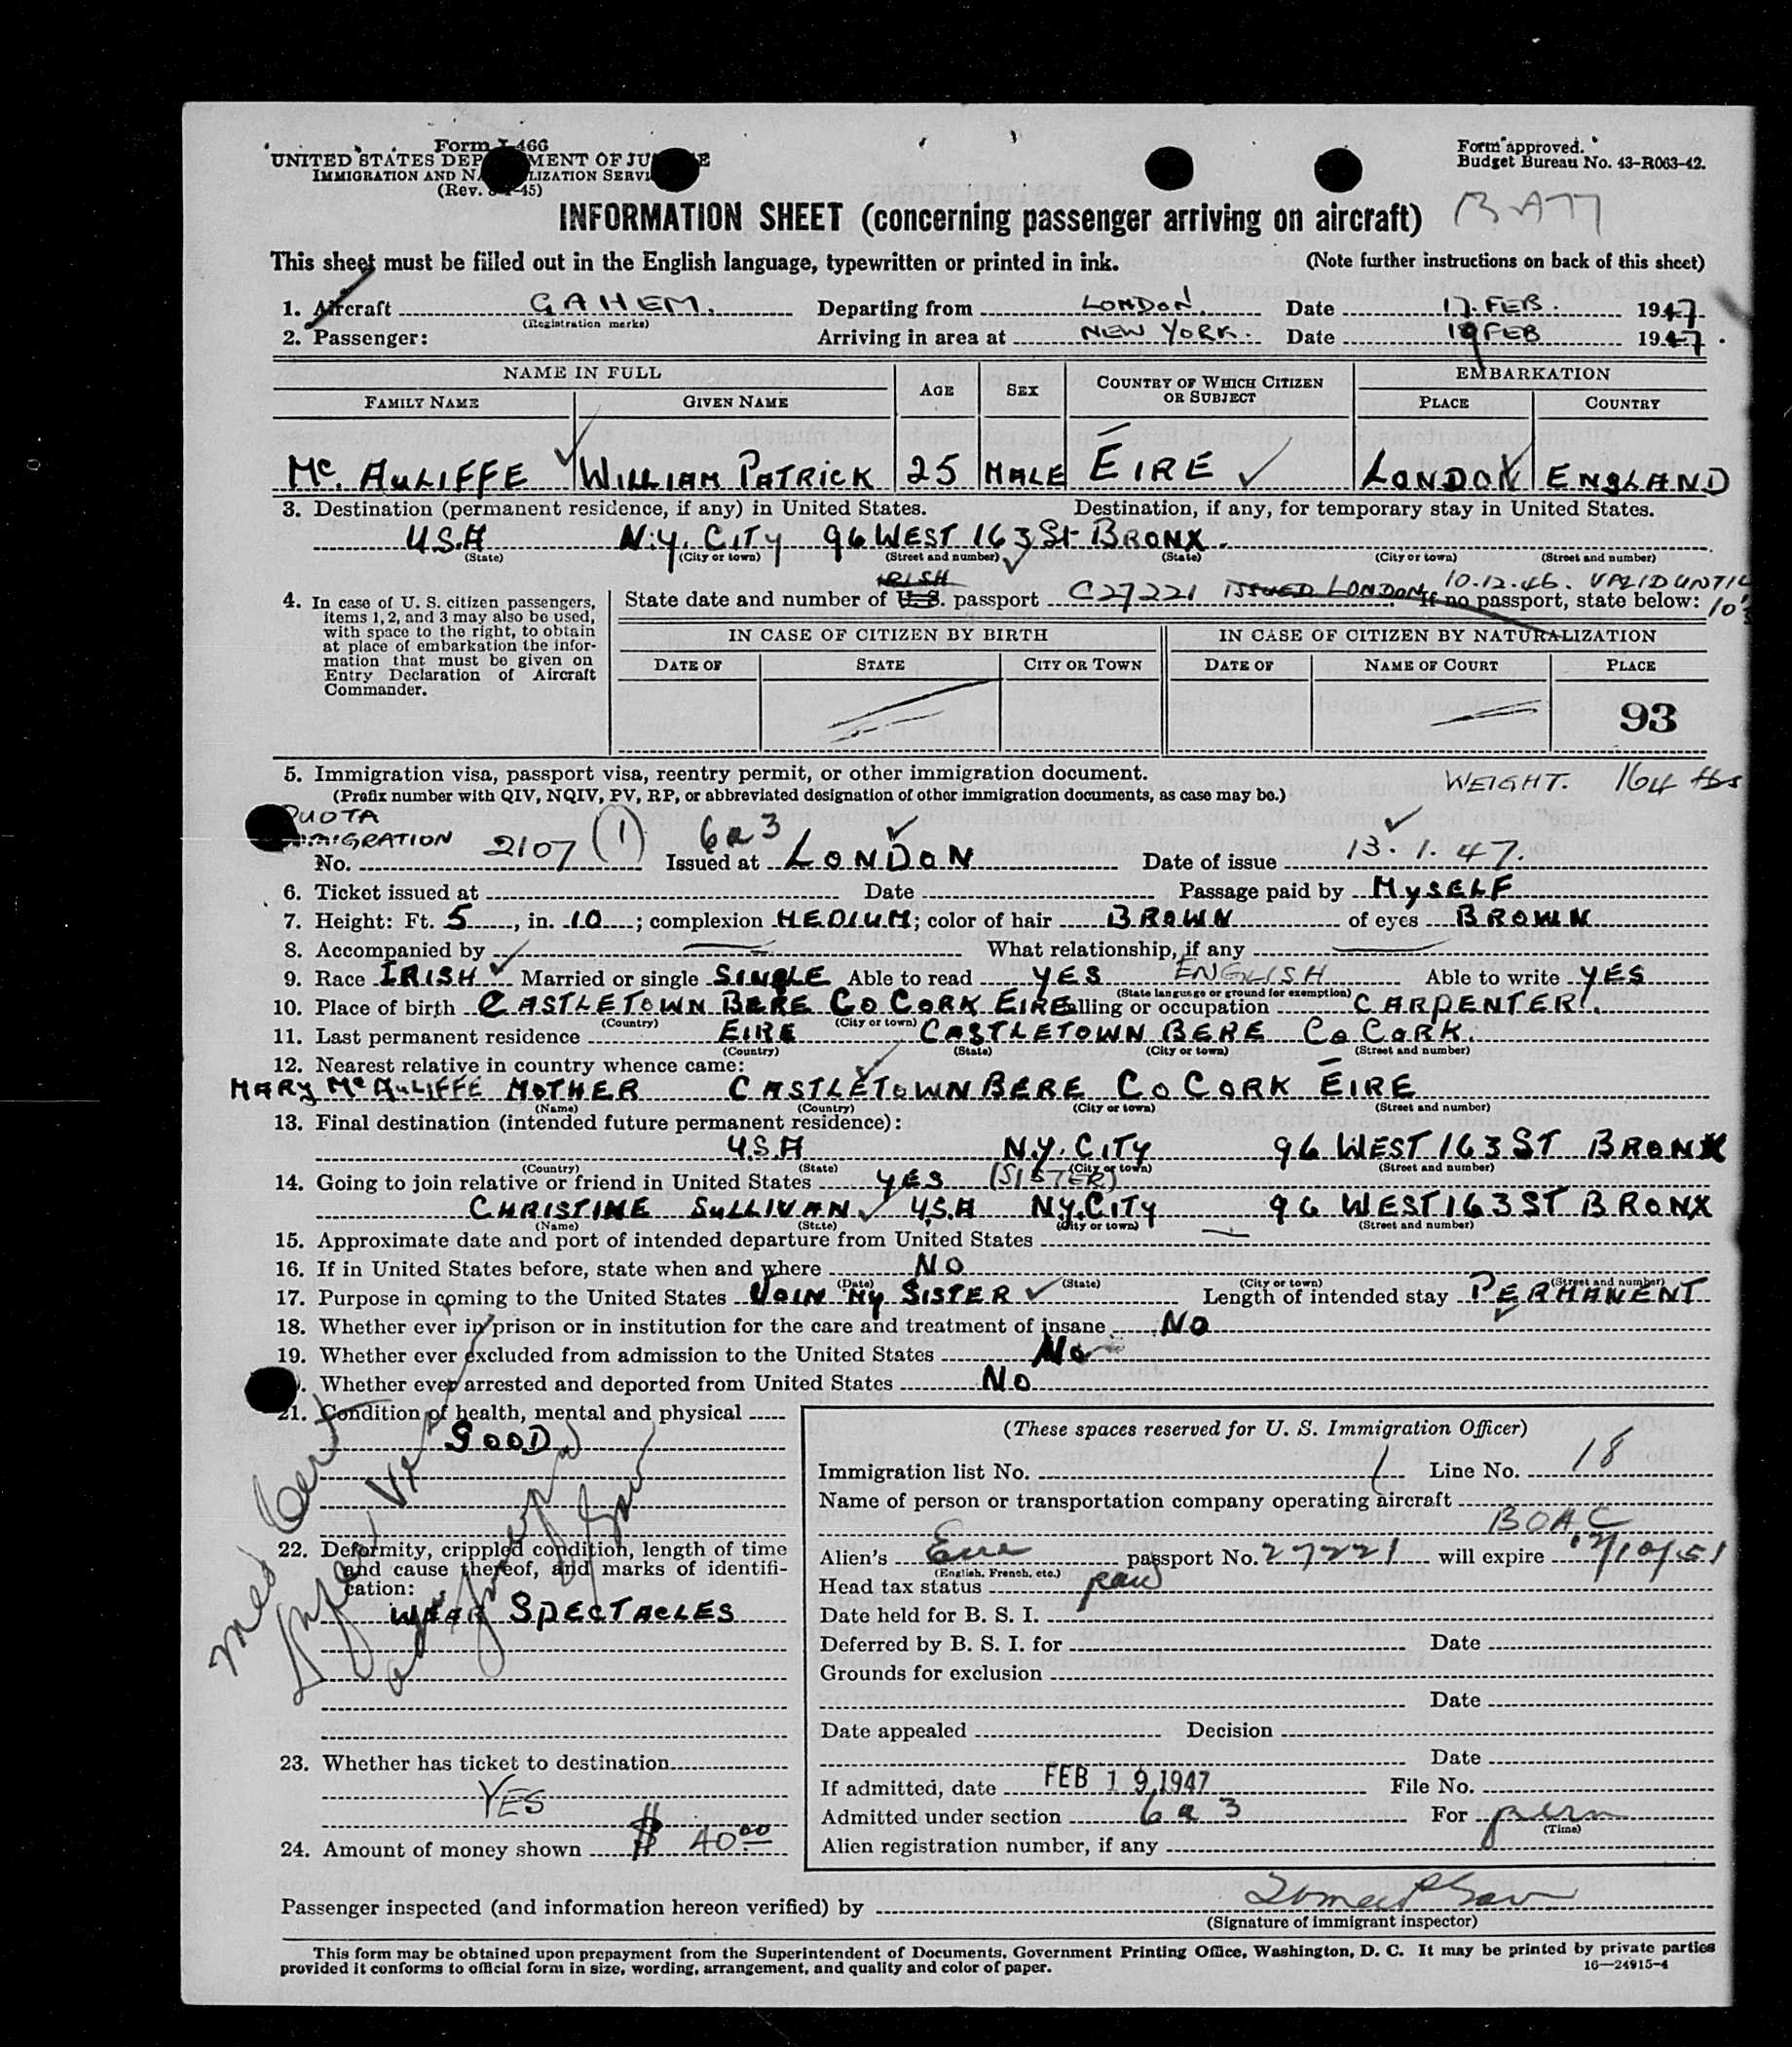 Form I-466
UNITED STATES DEP MENT OF JU E
IMMIGRATION AND NA LIZATION SERVI
(Rev. -45)
Form approved.
Budget Bureau No. 43-R063-42.
INFORMATION SHEET (concerning passenger arriving on aircraft)
This sheet must be filled out in the English language, typewritten or printed in ink. (Note further instructions on back of this sheet)
1. Aircraft GAHEM. Departing from LONDON. Date 17. FEB. 1947
(Registration marks)
2. Passenger: Arriving in area at NEW YORK. Date 19 FEB 1947.
NAME IN FULL AGE SEX COUNTRY OF WHICH CITIZEN OR SUBJECT EMBARKATION
FAMILY NAME GIVEN NAME PLACE COUNTRY
Mc. AULIFFE WILLIAM PATRICK 25 MALE ÉIRE LONDON ENGLAND
3. Destination (permanent residence, if any) in United States. Destination, if any, for temporary stay in United States.
U.S.A N.Y. CITY 96 WEST 163 St BRONX.
(State) (City or town) (Street and number) (State) (City or town) (Street and number)
IRISH 10.12.46. VALID UNTIL
4. In case of U. S. citizen passengers, items 1, 2, and 3 may also be used, with space to the right, to obtain at place of embarkation the information that must be given on Entry Declaration of Aircraft Commander.
State date and number of U.S. passport C27221 ISSUED LONDON If no passport, state below:
IN CASE OF CITIZEN BY BIRTH IN CASE OF CITIZEN BY NATURALIZATION
DATE OF STATE CITY OR TOWN DATE OF NAME OF COURT PLACE
93
5. Immigration visa, passport visa, reentry permit, or other immigration document.
(Prefix number with QIV, NQIV, PV, RP, or abbreviated designation of other immigration documents, as case may be.)
WEIGHT. 164 lbs
QUOTA
IMMIGRATION
No. 2107 (1) 6a3 Issued at LONDON Date of issue 13.1.47.
6. Ticket issued at Date Passage paid by MYSELF
7. Height: Ft. 5, in. 10; complexion MEDIUM; color of hair BROWN of eyes BROWN
8. Accompanied by What relationship, if any
9. Race IRISH Married or single SINGLE Able to read YES ENGLISH Able to write YES
(State language or ground for exemption)
10. Place of birth CASTLETOWN BERE CO CORK EIRE alling or occupation CARPENTER.
(Country) (City or town)
11. Last permanent residence EIRE CASTLETOWN BERE Co CORK.
(Country) (State) (City or town) (Street and number)
12. Nearest relative in country whence came:
MARY McAULIFFE MOTHER CASTLETOWNBERE CO CORK ÉIRE
(Name) (Country) (City or town) (Street and number)
13. Final destination (intended future permanent residence):
U.S.A N.Y. CITY 96 WEST 163 ST BRONX
(Country) (State) (City or town) (Street and number)
14. Going to join relative or friend in United States YES (SISTER)
CHRISTINE SULLIVAN U.S.A NY.CITY 96 WEST 163 ST BRONX
(Name) (State) (City or town) (Street and number)
15. Approximate date and port of intended departure from United States
16. If in United States before, state when and where NO
(Date) (State) (City or town) (Street and number)
17. Purpose in coming to the United States JOIN MY SISTER Length of intended stay PERMANENT
18. Whether ever in prison or in institution for the care and treatment of insane NO
19. Whether ever excluded from admission to the United States NO
. Whether ever arrested and deported from United States NO
21. Condition of health, mental and physical
GOOD.
Med Cert
22. Deformity, crippled condition, length of time and cause thereof, and marks of identification:
WEAR SPECTACLES
23. Whether has ticket to destination
YES
24. Amount of money shown $ 40 00
(These spaces reserved for U. S. Immigration Officer)
Immigration list No. 1 Line No. 18
Name of person or transportation company operating aircraft
BOAC
Alien's Eire passport No. 27221 will expire
(English, French, etc.)
Head tax status paid
Date held for B. S. I.
Deferred by B. S. I. for Date
Grounds for exclusion
Date
Date appealed Decision
Date
If admitted, date FEB 19 1947 File No.
Admitted under section 6a3 For perm
(Time)
Alien registration number, if any
Passenger inspected (and information hereon verified) by
(Signature of immigrant inspector)
This form may be obtained upon prepayment from the Superintendent of Documents, Government Printing Office, Washington, D. C. It may be printed by private parties
provided it conforms to official form in size, wording, arrangement, and quality and color of paper. 16—24915-4